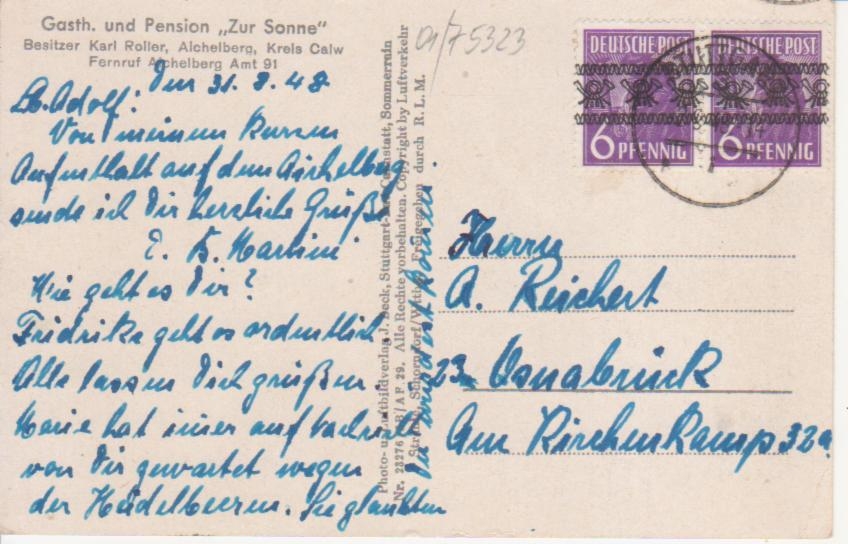 Gasth. und Pension „Zur Sonne"
Besitzer Karl Roller, Aichelberg, Kreis Calw
Fernruf Aichelberg Amt 91
Den 31. 8. 48
Lb. Adolf!
Von meinem kurzen
Aufenthalt auf dem Aichelberg
sende ich Dir herzliche Grüße
E. K. Martini
Wie geht es Dir?
Fridrike geht es ordentlich.
Alle lassen Dich grüßen.
Marie hat imer auf
von Dir gewartet wegen
der Heidelbeeren. Sie glaubten
Du würdest
Photo- u. Luftbildverlag J. Beck, Stuttgart-Bad Cannstatt, Sommerrain
Nr. 23276 AF 29. Alle Rechte vorbehalten. Copyright by Luftverkehr
Strähle, Schorndorf/Wttbg. Freigegeben durch R. L. M.
01/75323
DEUTSCHE POST
6 PFENNIG
DEUTSCHE POST
6 PFENNIG
Herrn
A. Reichert
23 Osnabrück
Am Kirchenkamp 32a